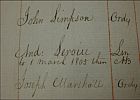 John Simpson Ordy
And: Serour Lm
to 1 March 1803 then AB
Joseph Marshall Ordy